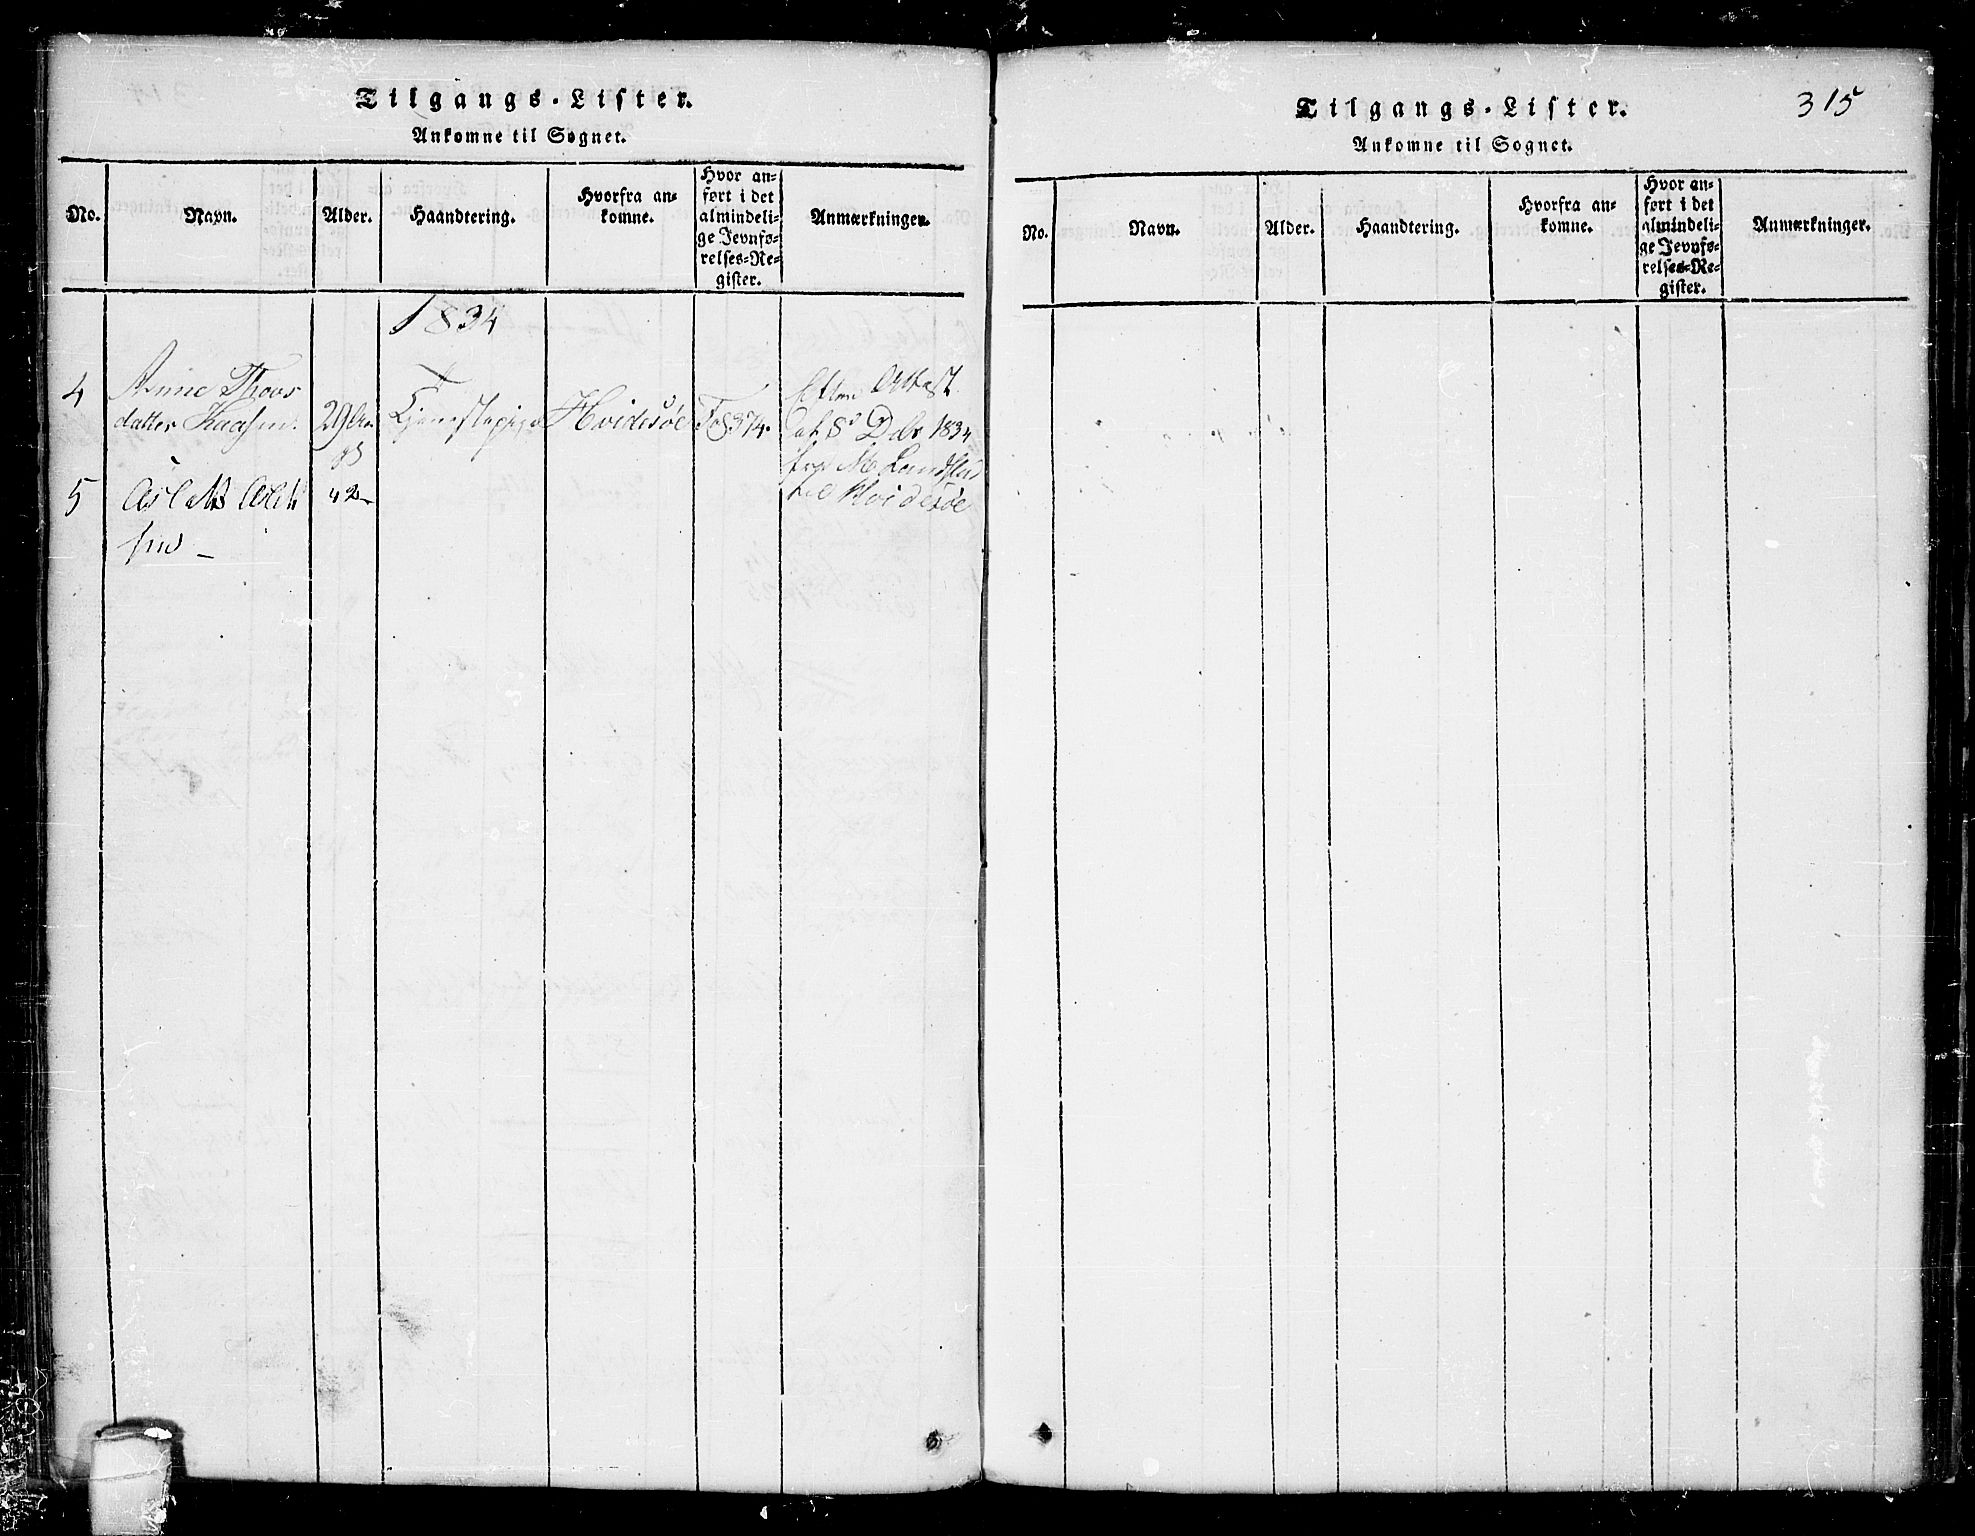 Tilgangs-Lister.
Ankomne til Sognet.
No.
Navn.
Alder.
Haandtering.
Hvorfra an-
komne.
Hvor an-
ført i det
almindeli-
ge Jevnfø-
relses-Re-
gister.
Anmærkninger.
1834
4
Anne Thors
datter Kaasen.
29
Tjenestepige
Hvidesøe
Fo 374.
Efter Attest
Dat 8d Dcbr 1834
fra M. Landstad
til Hvidesøe
5
Aslak
42
315
Tilgangs-Lister.
Ankomne til Sognet.
No.
Navn.
Alder.
Haandtering.
Hvorfra an-
komne.
Hvor an-
ført i det
almindeli-
ge Jevnfø-
relses-Re-
gister.
Anmærkninger.